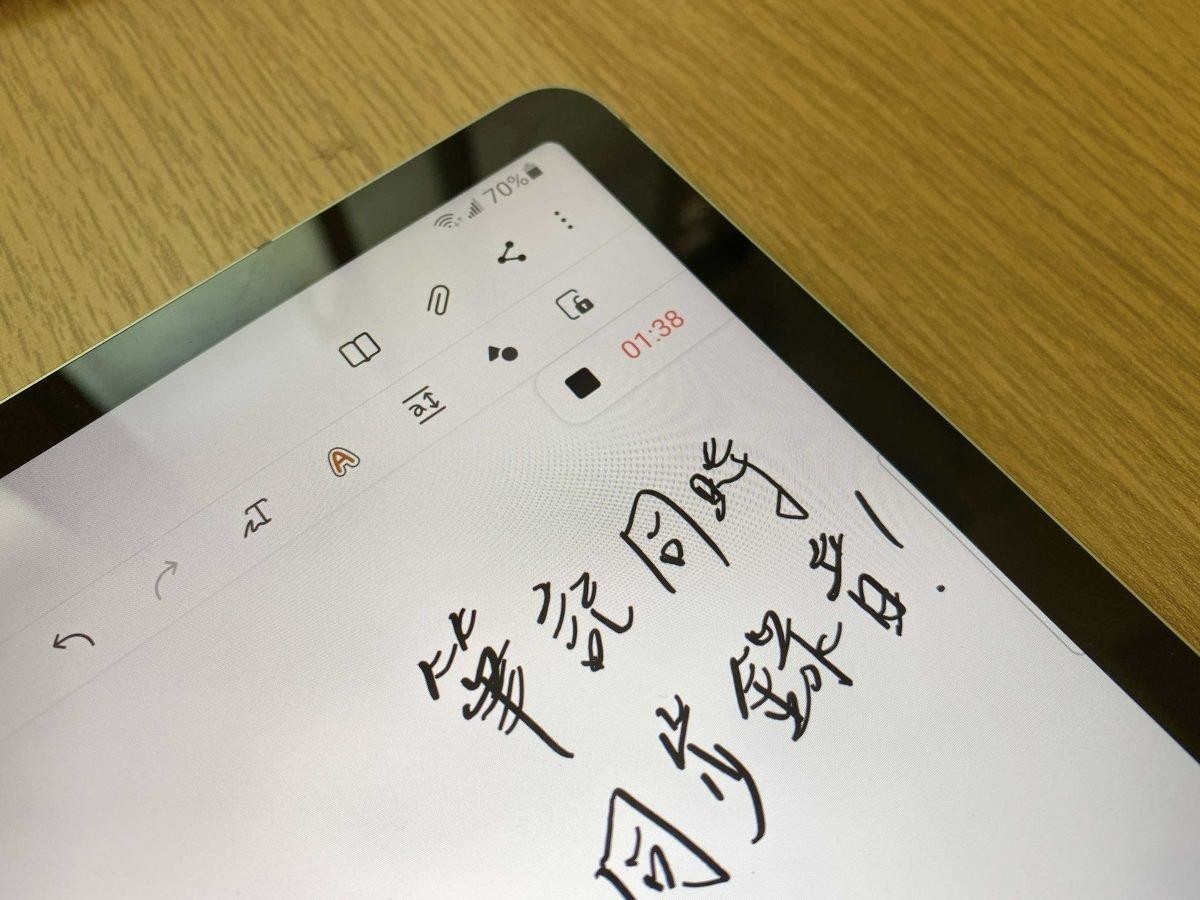 70%
01:38
筆記同時
同步錄音!